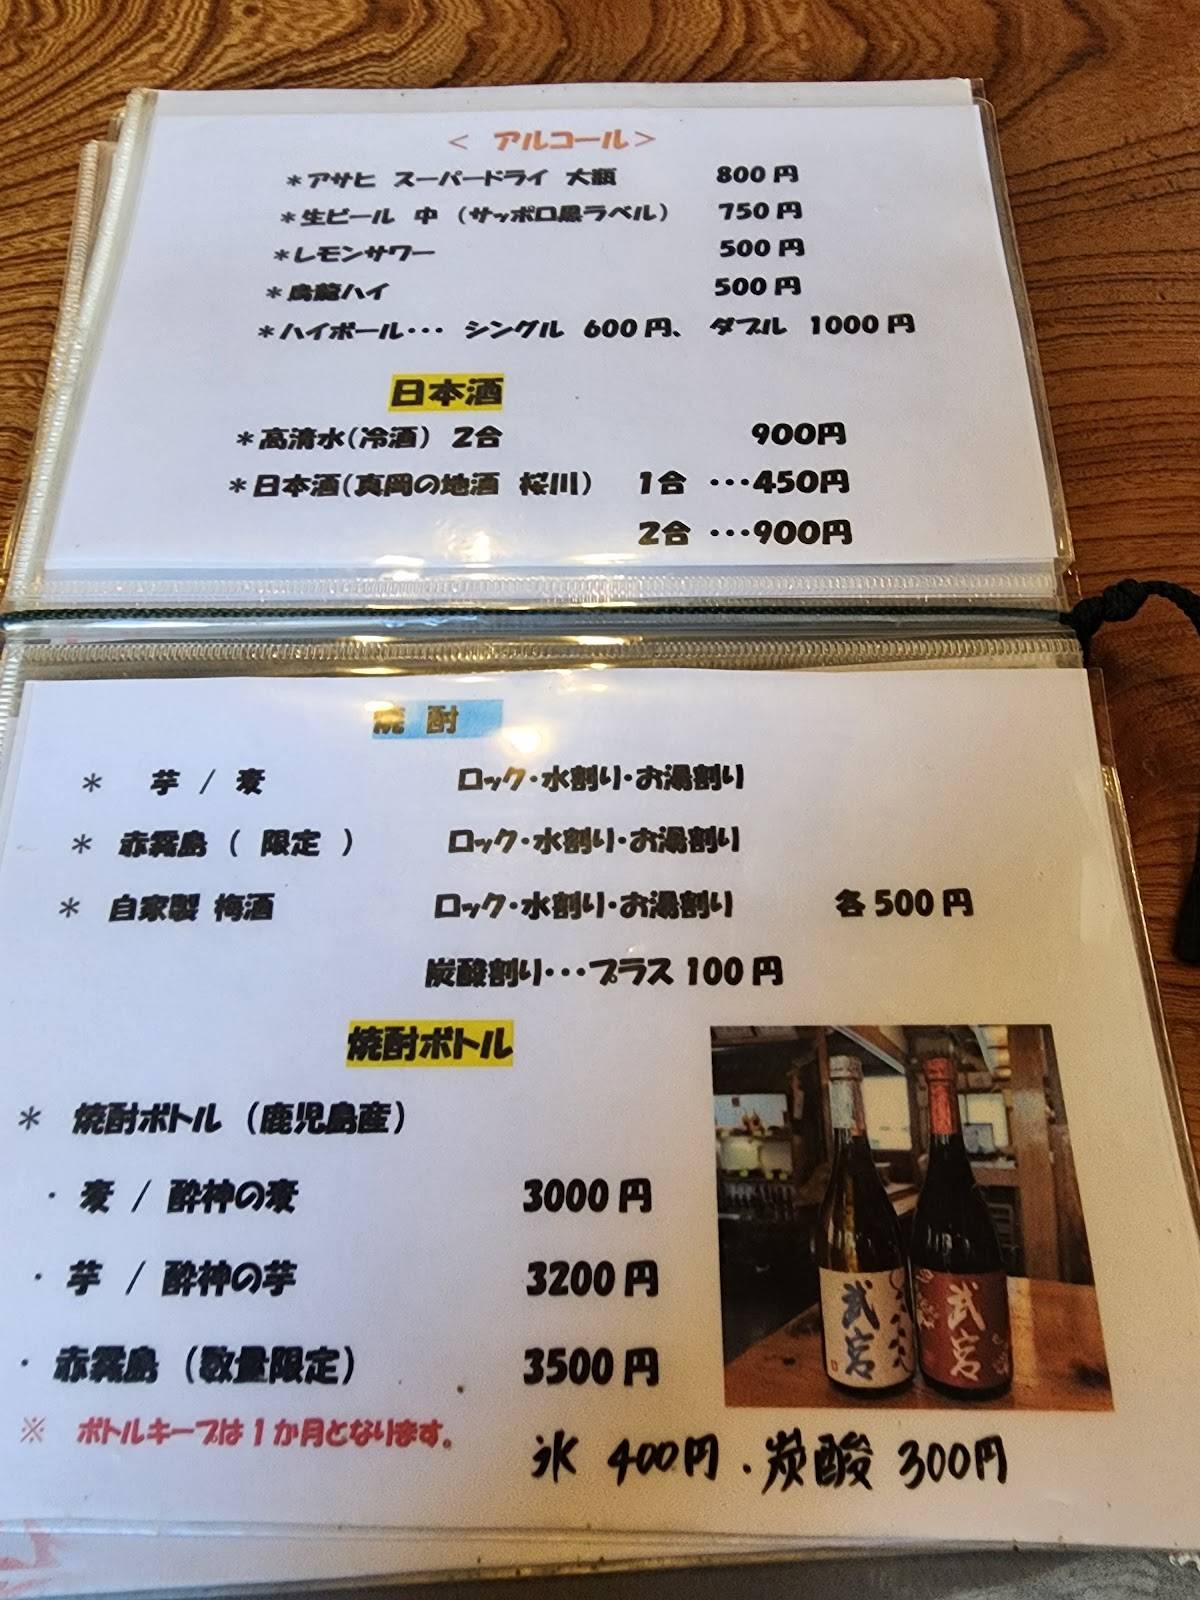 ＜ アルコール＞
＊アサヒ スーパードライ 大瓶 800円
＊生ビール 中 （サッポロ黒ラベル） 750円
＊レモンサワー 500円
＊烏龍ハイ 500円
＊ハイボール・・・ シングル 600円、 ダブル 1000円
日本酒
＊高清水（冷酒） 2合 900円
＊日本酒（真岡の地酒 桜川） 1合 ・・・450円
2合 ・・・900円
焼 酎
＊ 芋 / 麦 ロック・水割り・お湯割り
＊ 赤霧島 （ 限定 ） ロック・水割り・お湯割り
＊ 自家製 梅酒 ロック・水割り・お湯割り 各500円
炭酸割り・・・プラス100円
焼酎ボトル
＊ 焼酎ボトル （鹿児島産）
・ 麦 / 酔神の麦 3000円
・ 芋 / 酔神の芋 3200円
・ 赤霧島 （数量限定） 3500円
※ ボトルキープは1か月となります。
氷 400円 . 炭酸 300円
武宮
武宮